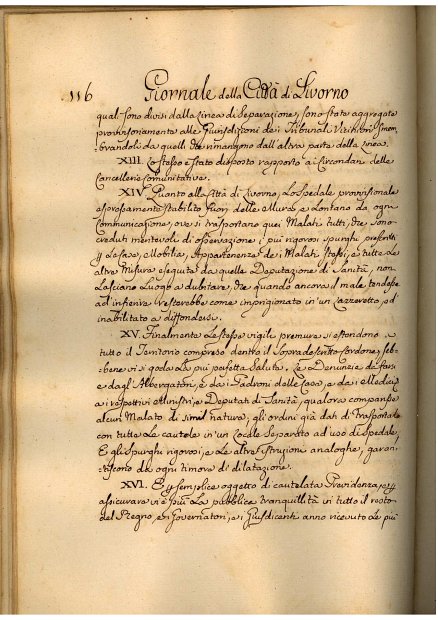 116 Giornale della Città di Livorno
quali sono divisi dalla linea di Separazione, sono state aggregate
provvisoriamente alle Giurisdizioni dei Tribunali Vicini, smem-
brandoli da quelli che rimangono dall'altra parte della linea.
XIII. Lo stesso è stato disposto rapporto ai Circondari delle
Cancellerie Comunitative.
XIV. Quanto alla Città di Livorno, Lo Spedale provvisionale
espressamente stabilito fuori delle Mura, e Lontano da ogni
Comunicazione, ove si trasportano quei Malati tutti, che sono
creduti meritevoli di osservazione i più rigorosi spurghi prescritti
per La Casa, e Mobilia, Appartenenza dei Malati stessi, e tutte Le
altre Misure eseguite da quella Deputazione di Sanità, non
Lasciano Luogo a dubitare, che quando ancora il male tendesse
ad infierire resterebbe come imprigionato in un Lazzeretto, ed
inabilitato a diffondersi.
XV. Finalmente Le stesse vigili premure si estendono a
tutto il Territorio compreso dentro il Sopradescritto Cordone, seb-
bene vi si goda La più perfetta Salute. Le Denunzie da farsi
e dagl'Albergatori, e dai Padroni delle Case, e dai Medici
ai respettivi Ministri, e Deputati di Sanità, qualora comparisse
alcun Malato di simil natura, gli ordini già dati di trasportarlo
con tutte Le cautele in un Locale Separato ad uso di Spedale,
E gli spurghi rigorosi, e Le altre istruzioni analoghe, garan-
tiscono da ogni timore di dilatazione.
XVI. E per semplice oggetto di cautelata Previdenza, e per
assicurare vie più La pubblica tranquillità in tutto il resto
del Regno, e i Governatori, e i Giusdicenti anno ricevuto Le più